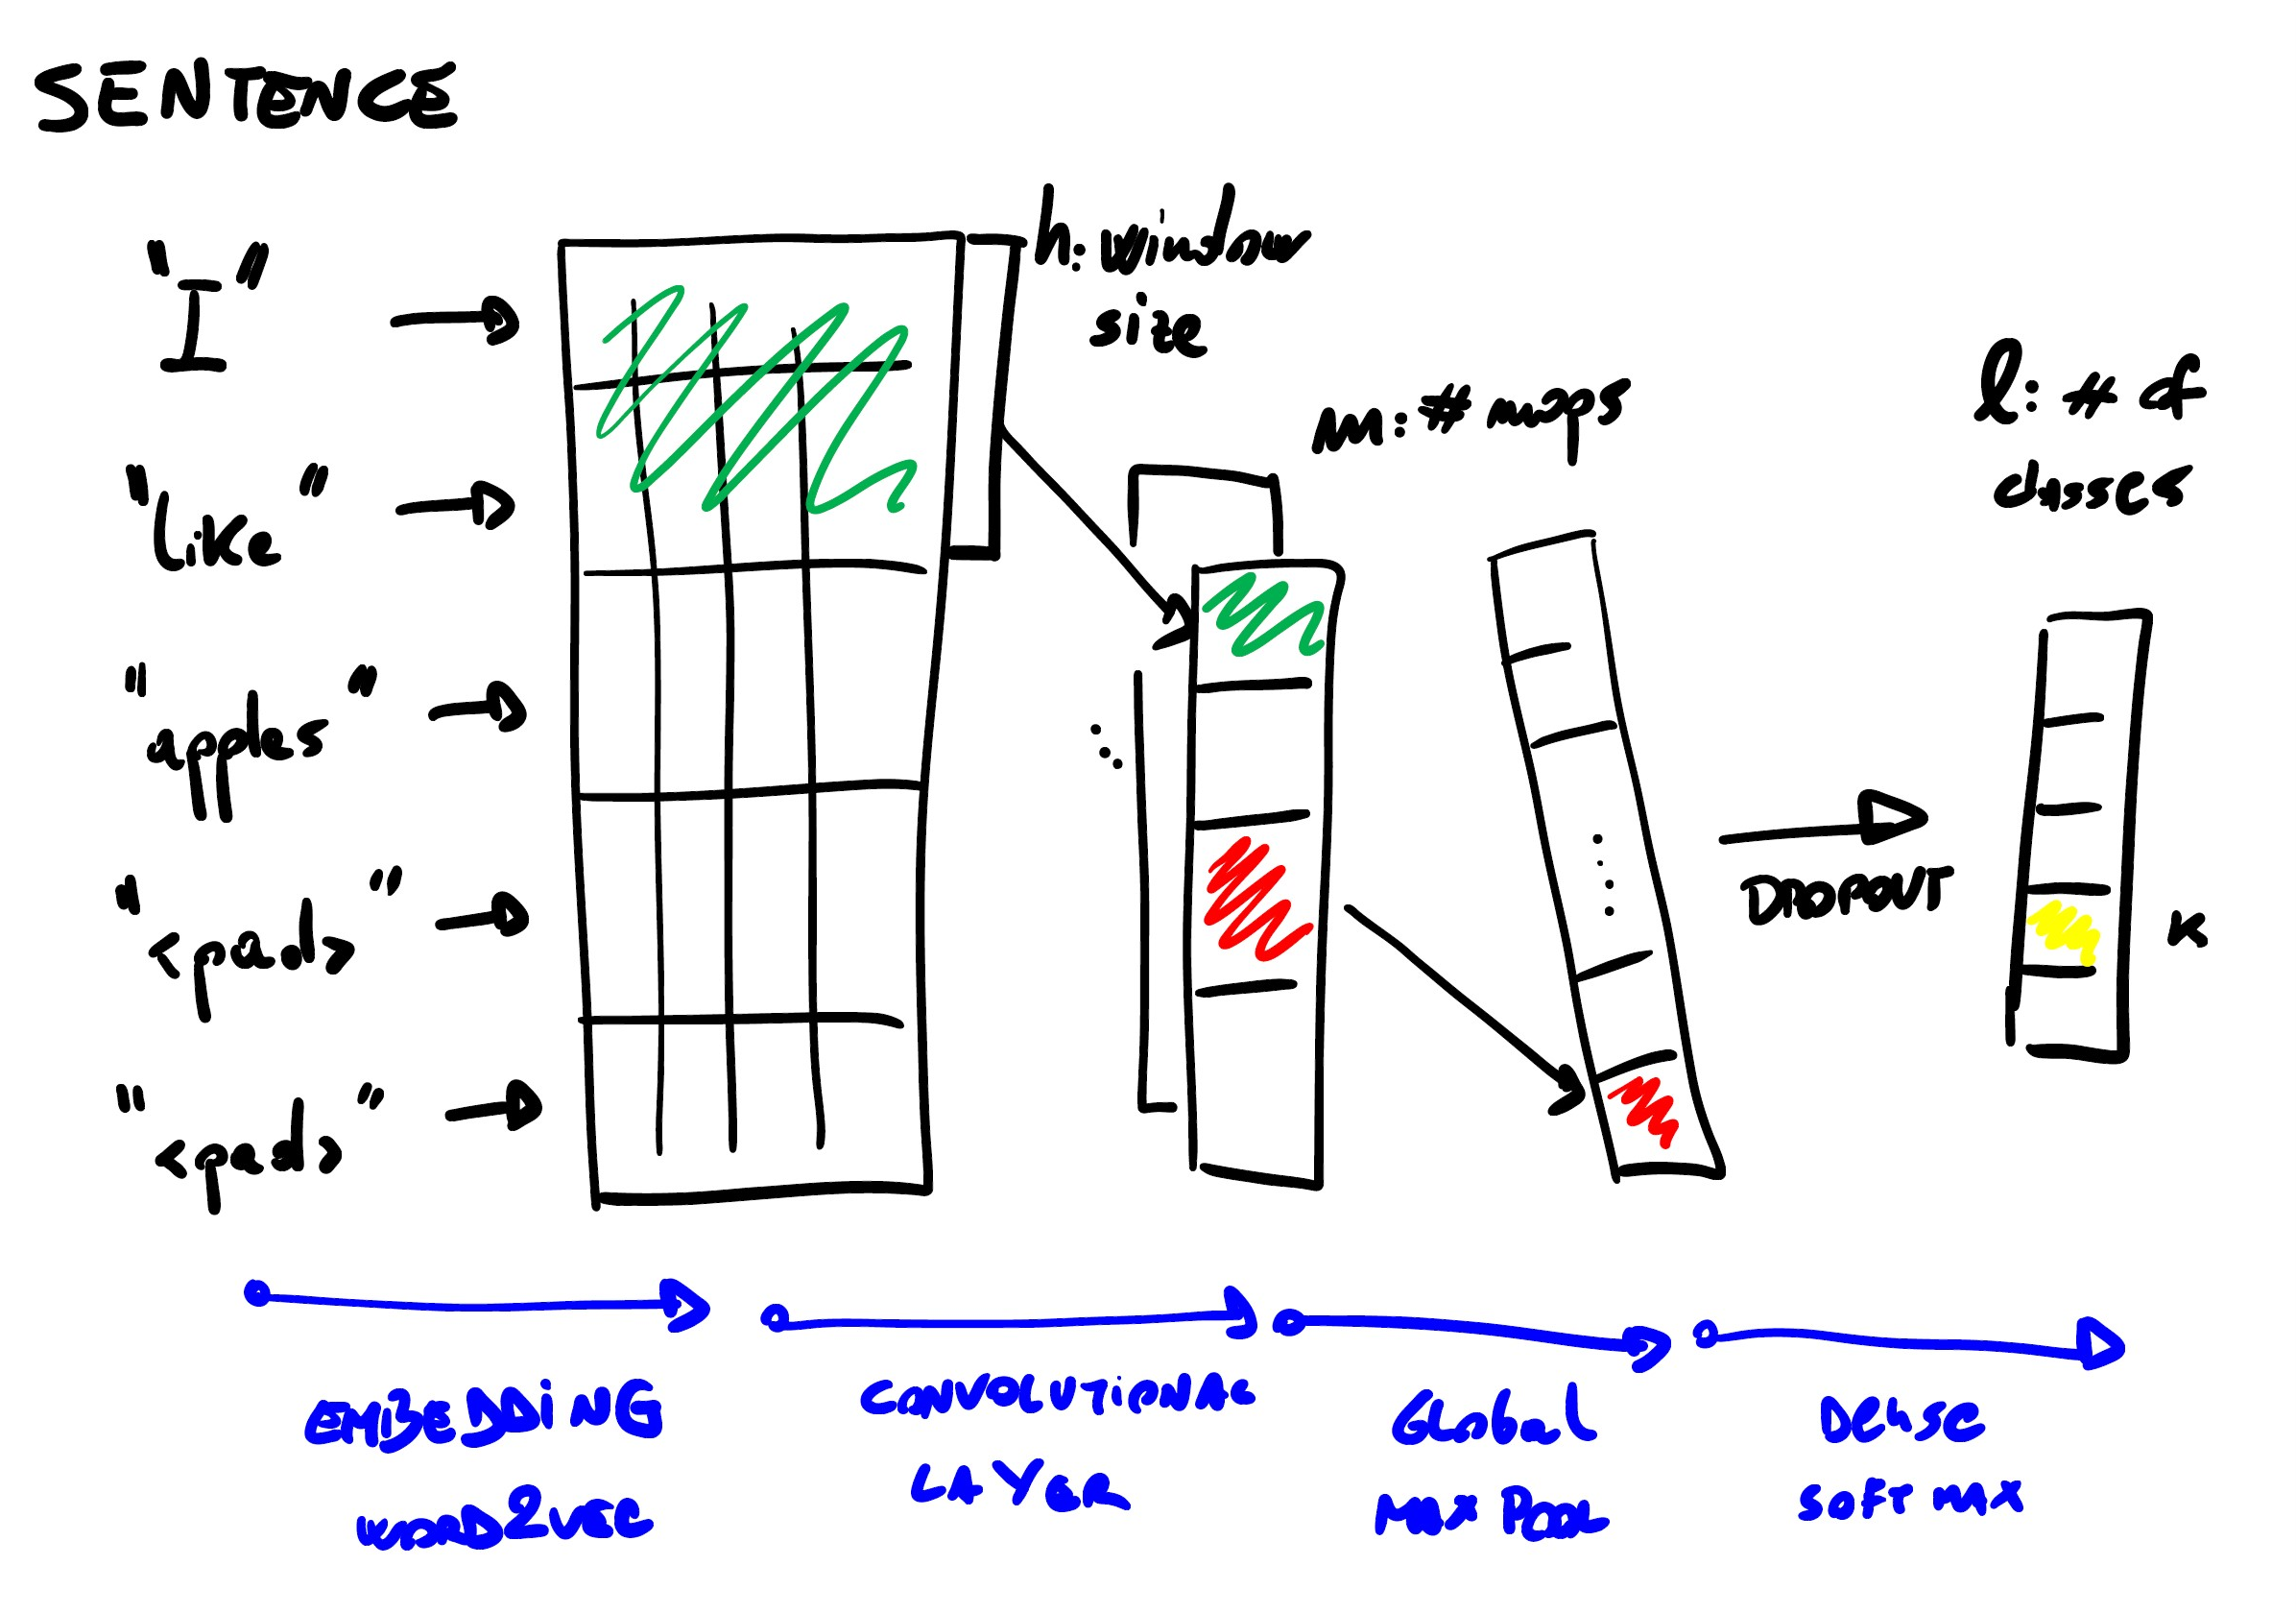 SENTENCE
"I"
"like"
"apples"
"<pad>"
"<pad>"
h: window
size
m: # maps
l: # of
classes
DROPOUT
K
EMBEDDING
WORD2VEC
CONVOLUTIONAL
LAYER
Global
Max Pool
Dense
SOFTMAX